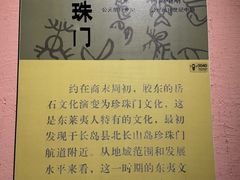 珠门
0040
约在商末周初，胶东的岳
石文化演变为珍珠门文化，这
是东莱夷人特有的文化，最初
发现于长岛县北长山岛珍珠门
航道附近。从地域范围和发展
水平来看，这一时期的东夷文